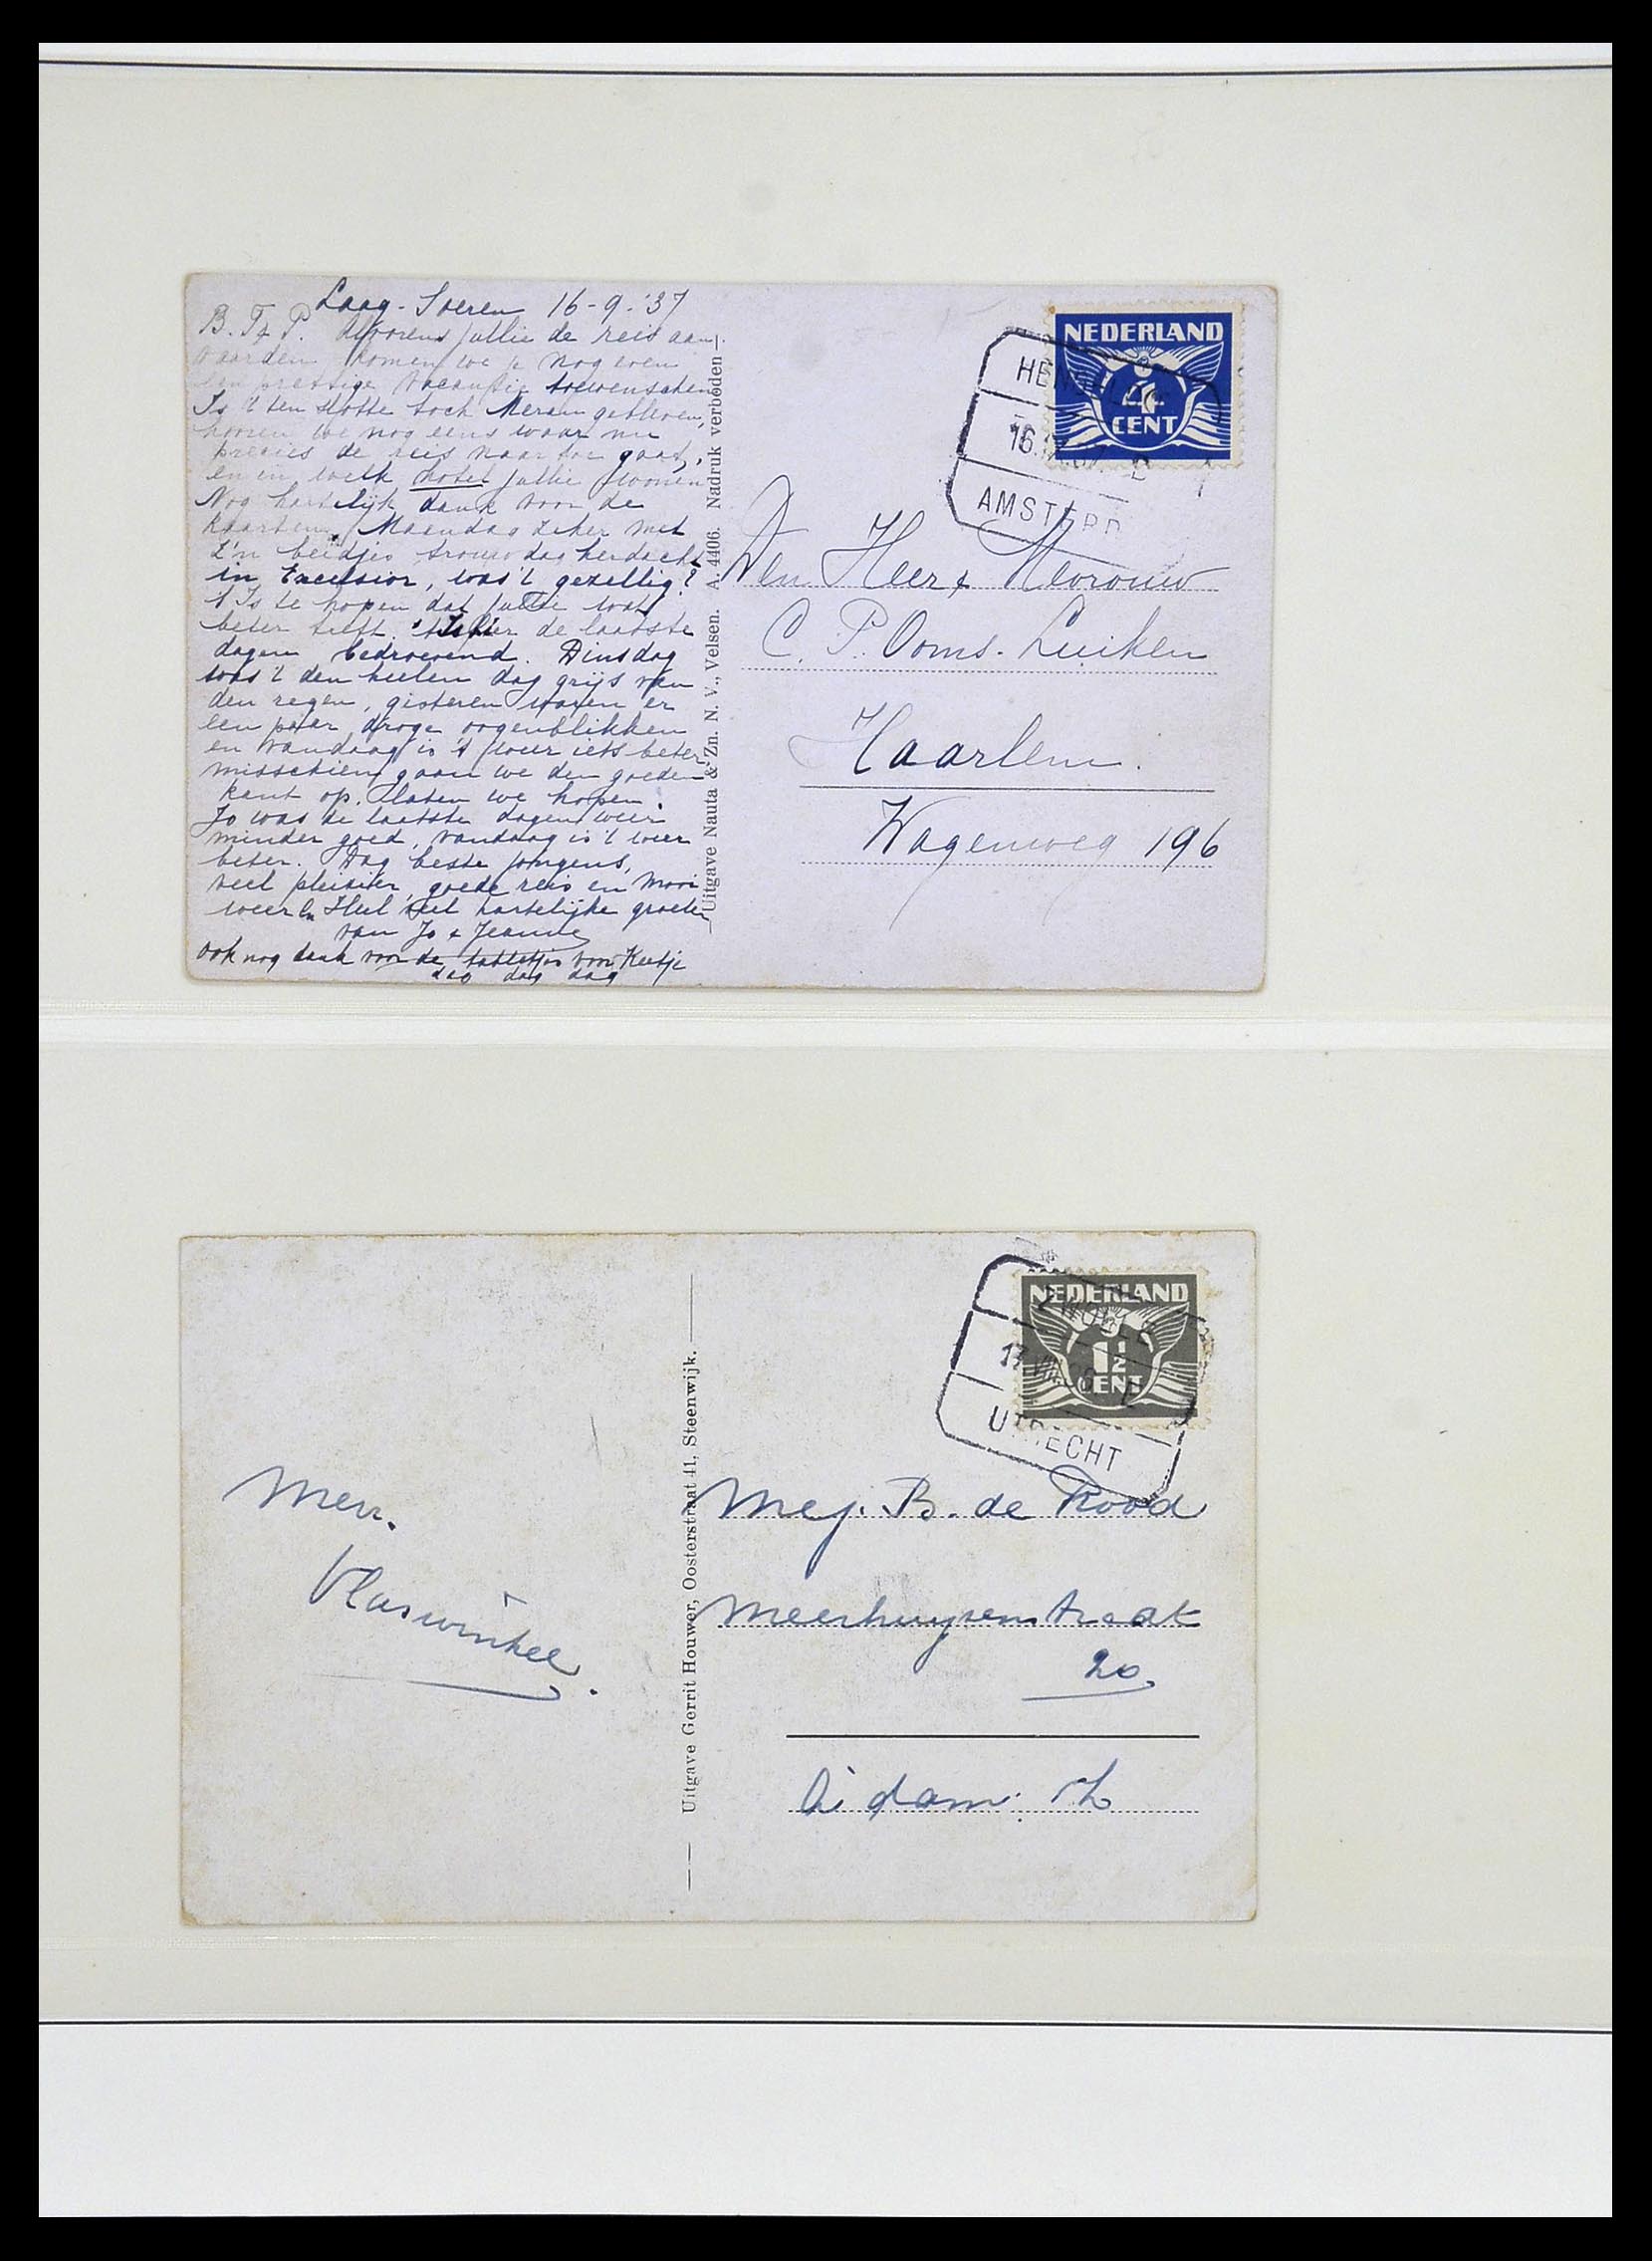 Laag-Soeren 16-9-'37
B. T & P. Alvorens jullie de reis aan-
vaarden komen we je nog even
een prettige vacantie toewenschen
Is 't ten slotte toch Meran gebleven,
hooren we nog eens waar nu
precies de reis naar toe gaat,
en in welk hotel jullie wonen
Nog hartelijk dank voor de
kaarten. Maandag zeker met
z'n beidjes trouwdag herdacht
in Excelsior, was 't gezellig?
't Is te hopen dat jullie wat
beter treft. 't Is hier de laatste
dagen bedroevend. Dinsdag
was 't den heelen dag grijs van
den regen, gisteren waren er
een paar droge oogenblikken
en vandaag is 't weer iets beter
misschien gaan we den goeden
kant op. Laten we hopen.
Jo was de laatste dagen weer
minder goed, vandaag is 't weer
beter. Dag beste jongens,
veel pleizier, goede reis en mooi
weer en heel veel hartelijke groeten
van Jo & Jeanne
ook nog dank voor de tabletjes voor Keetje
dag dag dag
Uitgave Nauta & Zn. N. V., Velsen. A. 4406. Nadruk verboden
NEDERLAND
4
CENT
HENGELO
16.IX.37. E
AMSTERD
Den Heer & Mevrouw
C. P. Ooms-Luiken
Haarlem.
Wagenweg 196
Merr.
Vlaswinkel.
Uitgave Gerrit Houwer, Oosterstraat 41, Steenwijk.
NEDERLAND
1½
CENT
ZWOLLE
17.VIII.38. E
UTRECHT
Mej. B. de Rood
Meerhuyzenstraat
20.
A'dam. Z